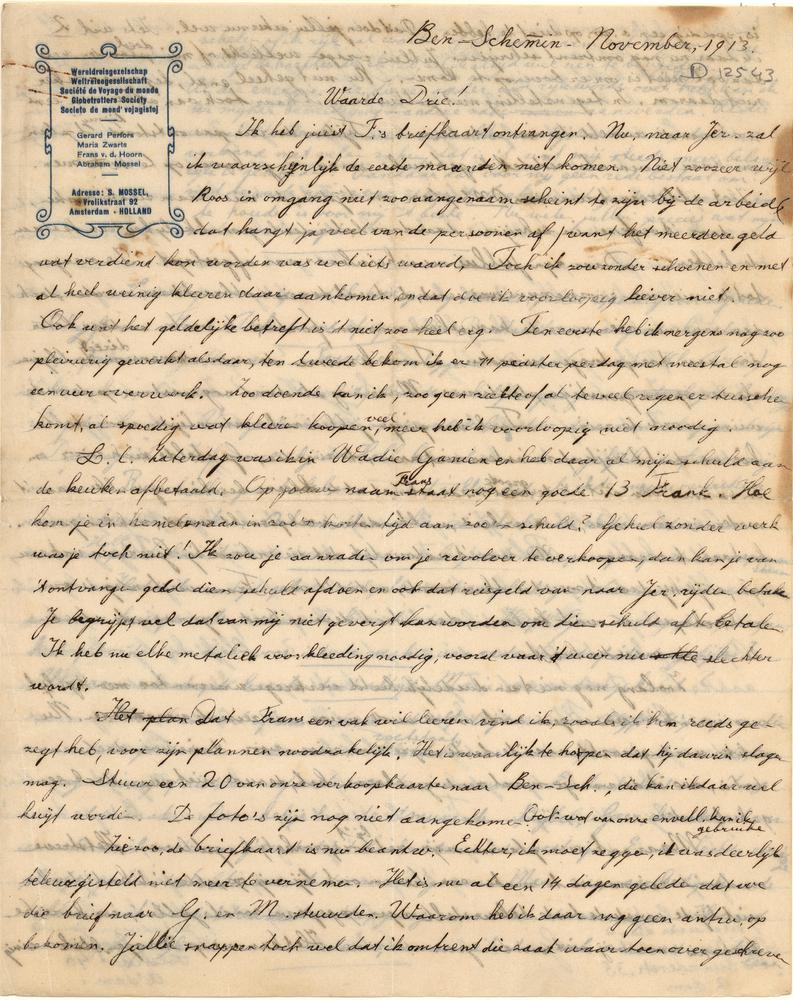 Ben-Schemin - November, 1913.
D 1254,3
Wereldreisgezelschap
Weltreisegesellschaft
Société de Voyage du monde
Globetrotters Society
Societo de mond' vojagistoj
Gerard Perfors
Maria Zwarts
Frans v. d. Hoorn
Abraham Mossel
Adresse: S. MOSSEL,
Vrolikstraat 92
Amsterdam - HOLLAND
Waarde Drie!
Ik heb juist F.'s briefkaart ontvangen. Nu, naar Jer. zal
ik waarschijnlijk de eerste maanden niet komen. Niet zoozeer wijl
Roos in omgang niet zoo aangenaam scheint te zijn bij de arbeid (
dat hangt ja veel van de persoonen af) want het meerdere geld
wat verdiend kon worden was wel iets waard, Toch ik zou zonder schoenen en met
al heel weinig kleeren daar aankomen en dat doe ik voorloopig liever niet.
Ook wat het geldelijke betreft is 't niet zoo heel erg. Ten eerste heb ik nergens nog zoo
pleizierig gewerkt als daar, ten tweede bekom ik er 11 piaster per dag met meestal nog
een uur overwerk. Zoo doende kan ik, zoo geen ziekte of al te veel regen er tussche
komt, al spoedig wat kleere koopen, veel meer heb ik voorloopig niet noodig.
L. l. Zaterdag was ik in Wadie Ganien en heb daar al mijn schuld aan
de keuken afbetaald. Op jouw naam Frans staat nog een goede 13 Frank. Hoe
kom je in hemelsnaam in zoo'n korten tijd aan zoo'n schuld? Geheel zonder werk
was je toch niet! Ik zou je aanraden om je revolver te verkoopen, dan kan je van
't ontvange geld dien schuld afdoen en ook dat reisgeld van naar Jer. rijden betale
Je begrijpt wel dat van mij niet gevergt kan worden om die schuld af te betale.
Ik heb nu elke metaliek voor kleeding noodig, vooral waar 't weer nu slechter
wordt.
Het plan Dat Frans een vak wil leeren vind ik, zooals ik hem reeds ge-
zegt heb, voor zijn plannen noodzakelijk. Het is waarlijk te hopen dat hij daarin slage
mag. Stuur een 20 van onze verkoopkaarte naar Ben-Sch., die kan ik daar wel
kwijt worde. De foto's zijn nog niet aangekome. Ook wat van onze envell. kan ik
gebruike
Ziezoo, de briefkaart is nu beantw. Echter, ik moet zegge, ik was deerlijk
teleurgesteld niet meer te verneme. Het is nu al een 14 dagen gelede dat we
die brief naar G. en M. stuurden. Waarom heb ik daar nog geen antw. op
bekomen. Jullie snappen toch wel dat ik omtrent die zaak waar toen over geschreve